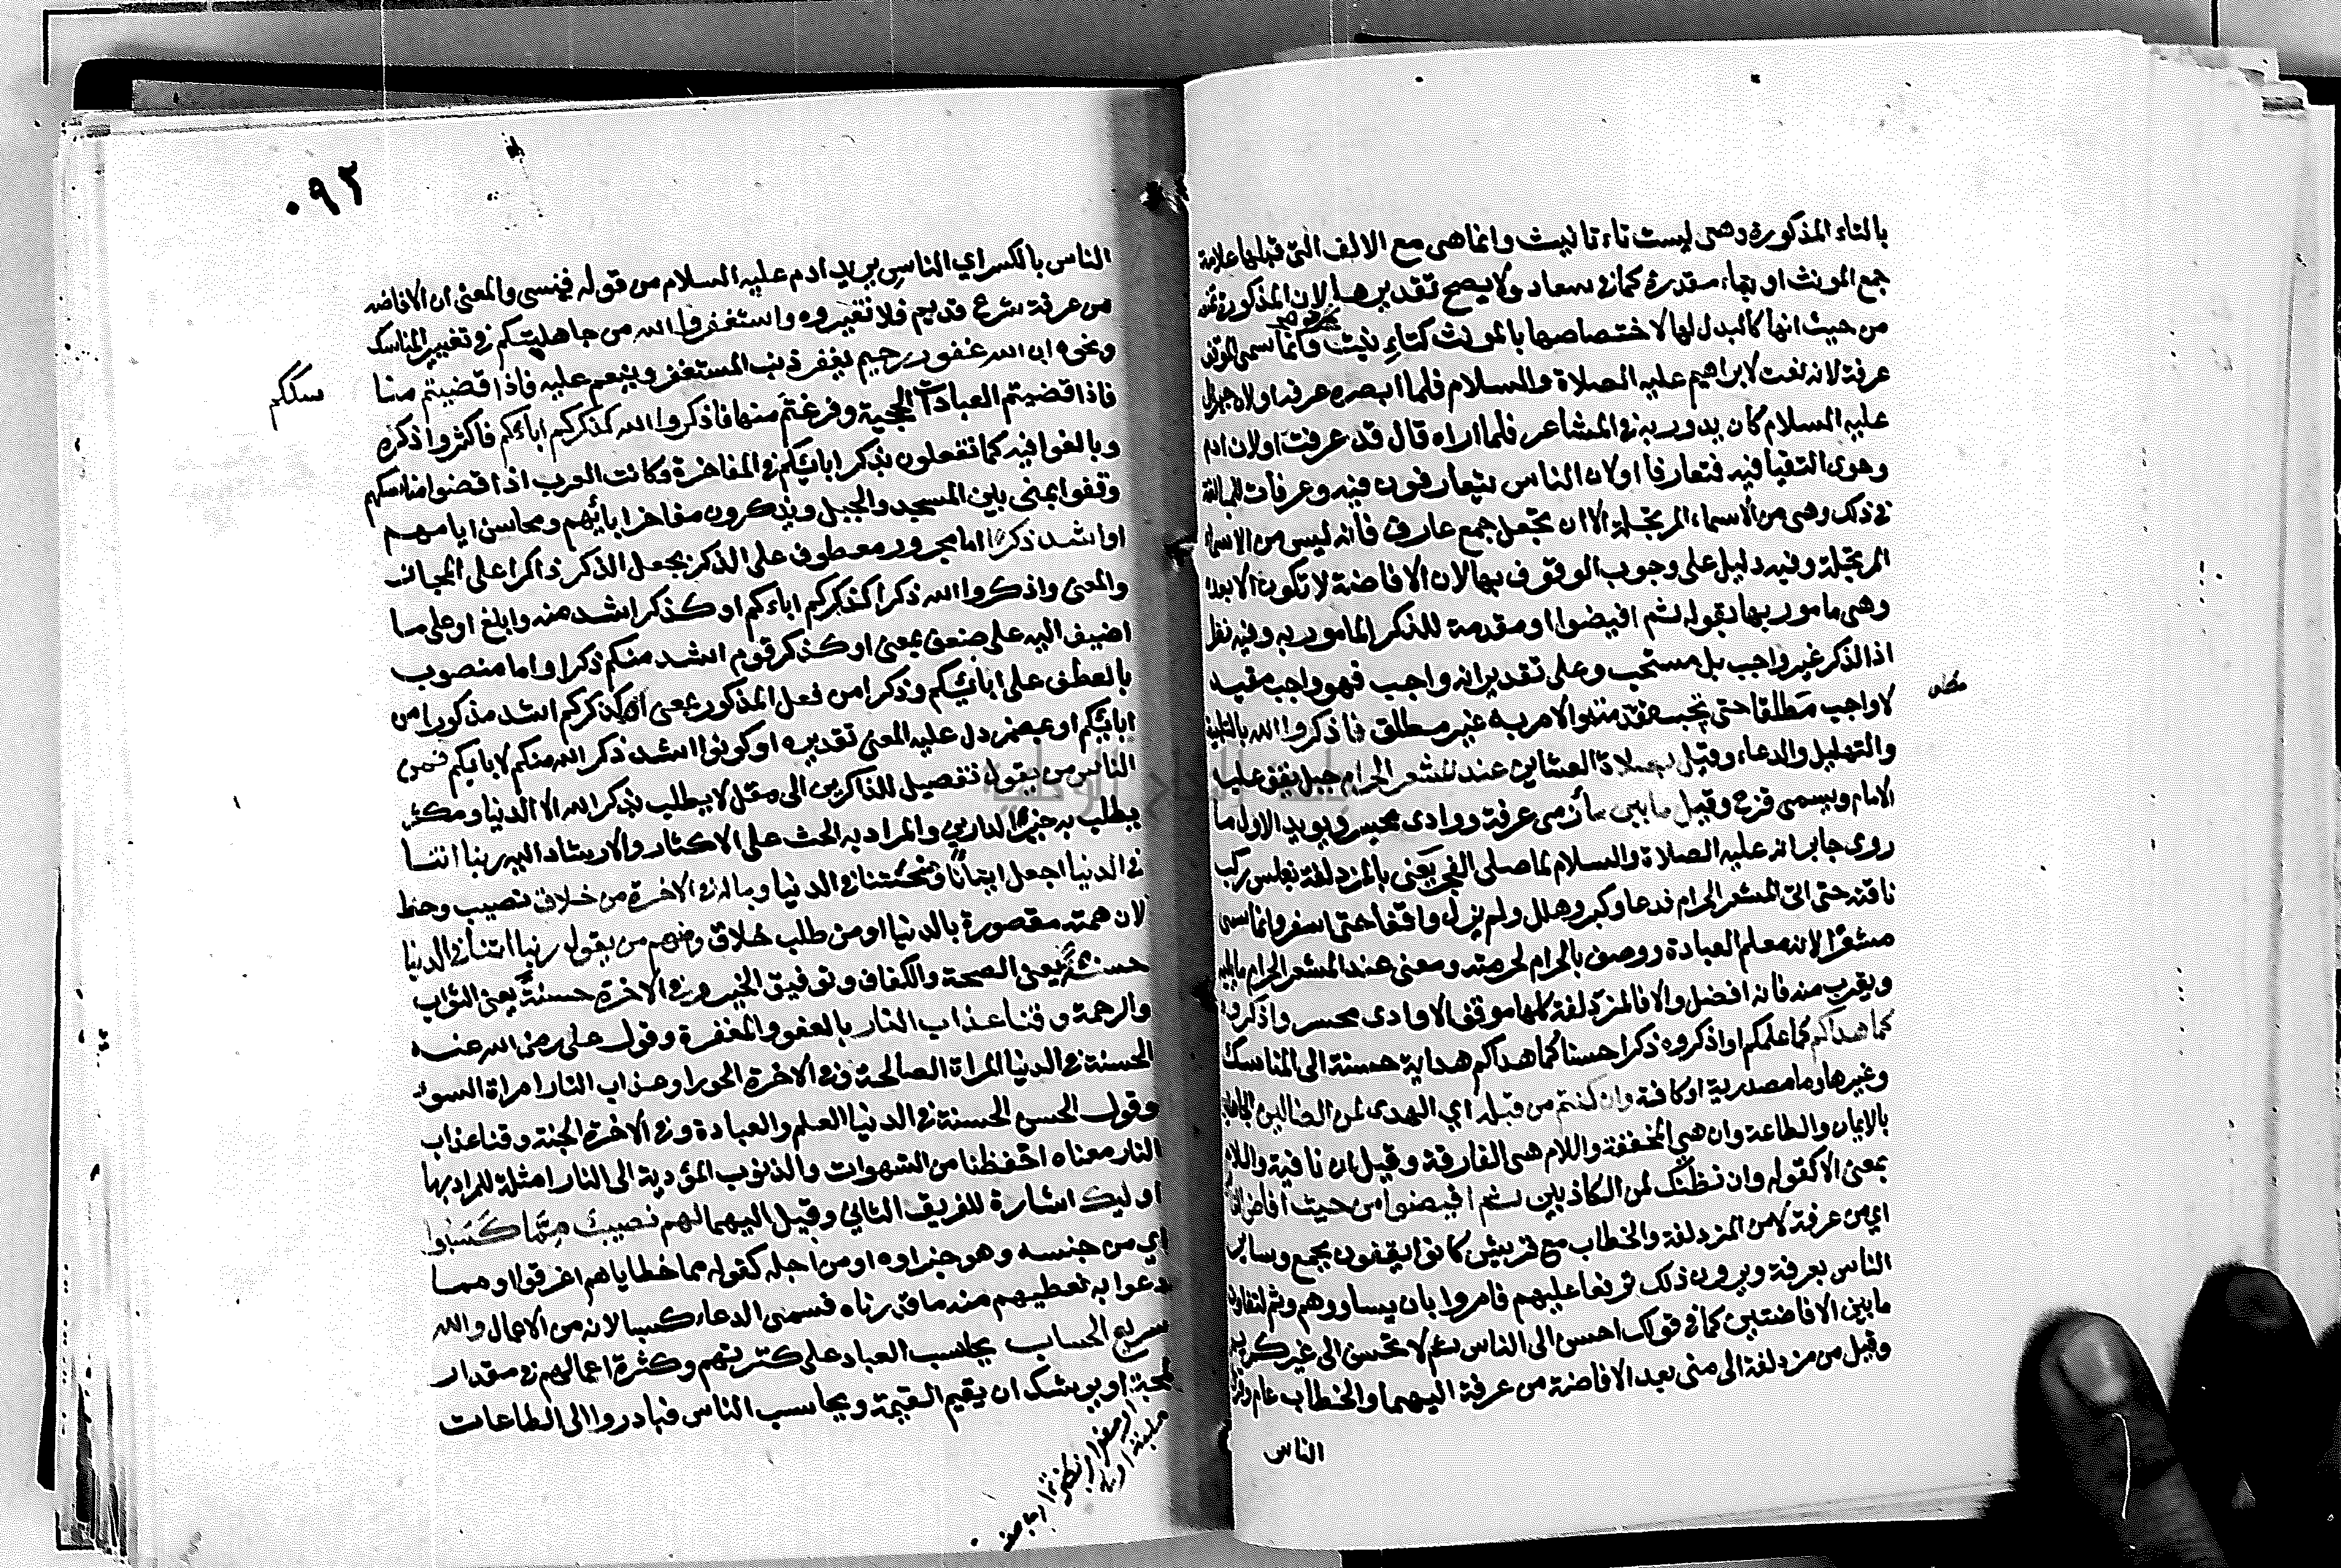 بالتاء المذكورة وهي ليست تاء تانيث وانما هي مع الالف التي قبلها علامة
جمع المونث او بتاء مقدرة كما في سعاد ولا يصح تقديرها لان المذكورة تمنعه
من حيث انها كالبدل لها لاختصاصها بالمونث كتاء بنت وانما سمى الموقف
عرفة لانه نعت لابراهيم عليه الصلاة والسلام فلما ابصره عرفه او لان جبرائيل
عليه السلام كان يدور به في المشاعر فلما اراه قال قد عرفت او لان ادم
وحوى التقيا فيه فتعارفا او لان الناس يتعارفون فيه وعرفات للمبالغة
في ذلك وهي من الاسماء المرتجلة الا ان يجعل جمع عارف فانه ليس من الاسماء
المرتجلة وفيه دليل على وجوب الوقوف بها لان الافاضة لا تكون الا بعده
وهي مامور بها بقوله ثم افيضوا او مقدمة للذكر المامور به وفيه نظر
اذ الذكر غير واجب بل مستحب وعلى تقدير انه واجب فهو واجب مقيد
لا واجب مطلقا حتى تجب مقدمته والامر به غير مطلق فاذكروا الله بالتلبية
والتهليل والدعاء وقيل بصلاة العشاين عند المشعر الحرام جبل يقف عليه
الامام ويسمى قزح وقيل ما بين مأزمى عرفة ووادى محسر ويويد الاول ما
روى جابر انه عليه الصلاة والسلام لما صلى الفجر يعنى بالمزدلفة بغلس ركب
ناقته حتى اتى المشعر الحرام فدعا وكبر وهلل ولم يزل واقفا حتى اسفر وانما سمى
مشعرا لانه معلم العبادة ووصف بالحرام لحرمته ومعنى عند المشعر الحرام ما يليه
ويقرب منه فانه افضل والا فالمزدلفة كلها موقف الا وادى محسر واذكروه
كما هداكم كما علمكم او اذكروه ذكرا حسنا كما هداكم هداية حسنة الى المناسك
وغيرها وما مصدرية او كافة وان كنتم من قبله اي الهدى لمن الضالين
بالايمان والطاعة وان هي المخففة واللام هي الفارقة وقيل ان نافية واللام
بمعنى الا كقوله وان نظنك لمن الكاذبين ثم افيضوا من حيث افاض الناس
اي من عرفة لا من المزدلفة والخطاب مع قريش كانوا يقفون بجمع وساير
الناس بعرفة ويرون ذلك ترفعا عليهم فامروا بان يساووهم وثم لتفاوت
ما بين الافاضتين كما في قولك احسن الى الناس ثم لا تحسن الى غير كريم
وقيل من مزدلفة الى منى بعد الافاضة من عرفة اليهما والخطاب عام وقرئ
الناس
٠٩٢
الناس بالكسر اي الناس يريد ادم عليه السلام من قوله فنسى والمعنى ان الافاضه
من عرفة شرع قديم فلا تغيروه واستغفروا الله من جاهليتكم في تغيير المناسك
ونحوه ان الله غفور رحيم يغفر ذنب المستغفر وينعم عليه فاذا قضيتم منا
سككم
فاذا قضيتم العبادات الحجية وفرغتم منها فاذكروا الله كذكركم اباءكم فاكثروا ذكره
وبالغوا فيه كما تفعلون بذكر ابائكم في المفاخرة وكانت العرب اذا قضوا مناسكهم
وقفوا بمنى بين المسجد والجبل ويذكرون مفاخر ابائهم ومحاسن ايامهم
او اشد ذكرا اما مجرور معطوف على الذكر بجعل الذكر ذاكرا على المجاز
والمعنى واذكروا الله ذكرا كذكركم اباءكم او كذكر اشد منه وابلغ او على ما
اضيف اليه على ضعف بمعنى او كذكر قوم اشد منكم ذكرا واما منصوب
بالعطف على ابائكم وذكرا من فعل المذكور بمعنى او كذكركم اشد مذكورا من
ابائكم او بمضمر دل عليه المعنى تقديره او كونوا اشد ذكر الله منكم لابائكم فمن
الناس من يقول تفصيل للذاكرين الى مقل لا يطلب بذكر الله الا الدنيا ومكثر
يطلب به خير الدارين والمراد به الحث على الاكثار والارشاد اليه ربنا اتنا
في الدنيا اجعل ايتأنا ومنحتنا في الدنيا وماله في الاخرة من خلاق نصيب وحظ
لان همته مقصورة بالدنيا او من طلب خلاق ومنهم من يقول ربنا اتنا في الدنيا
حسنة يعنى الصحة والكفاف وتوفيق الخير وفي الاخرة حسنة يعنى الثواب
والرحمة وقنا عذاب النار بالعفو والمغفرة وقول على رضى الله عنه
الحسنة في الدنيا المراة الصالحة وفي الاخرة الحورا وعذاب النار امراة السوء
وقول الحسن الحسنة في الدنيا العلم والعبادة وفي الاخرة الجنة وقنا عذاب
النار معناه احفظنا من الشهوات والذنوب المؤدية الى النار امثلة للمراد بها
اوليك اشارة للفريق الثاني وقيل اليهما لهم نصيب مما كسبوا
اي من جنسه وهو جزاوه او من اجله كقوله مما خطاياهم اغرقوا او مما
دعوا به نعطيهم منه ما قدرناه فسمى الدعاء كسبا لانه من الاعمال والله
سريع الحساب يحاسب العباد على كثرتهم وكثرة اعمالهم في مقدار
لمحة او يوشك ان يقيم القيمة ويحاسب الناس فبادروا الى الطاعات